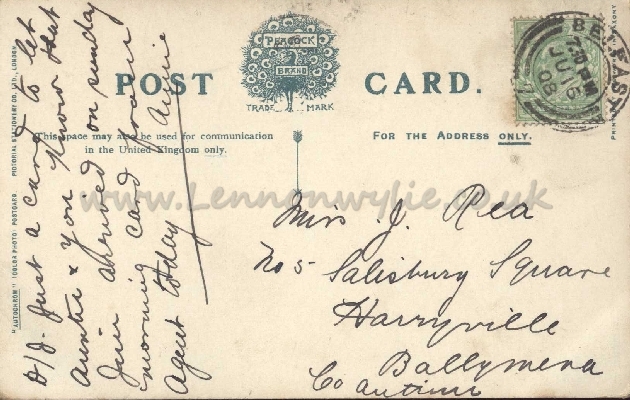 POST CARD.
PEACOCK
BRAND
TRADE MARK
This space may also be used for communication
in the United Kingdom only.
FOR THE ADDRESS ONLY.
BELFAST
7.30 PM
JU 15
08
"AUTOCHROM" (COLOR PHOTO) POSTCARD. PICTORIAL STATIONERY CO., LTD., LONDON.
PRINTED IN SAXONY
D/J. Just a card to let
Auntie & you know that
Jim arrived on Sunday
morning card from
Agent today Annie
Miss J. Rea
No 5 Salisbury Square
Harryville
Ballymena
Co Antrim
www.Lennonwylie.co.uk